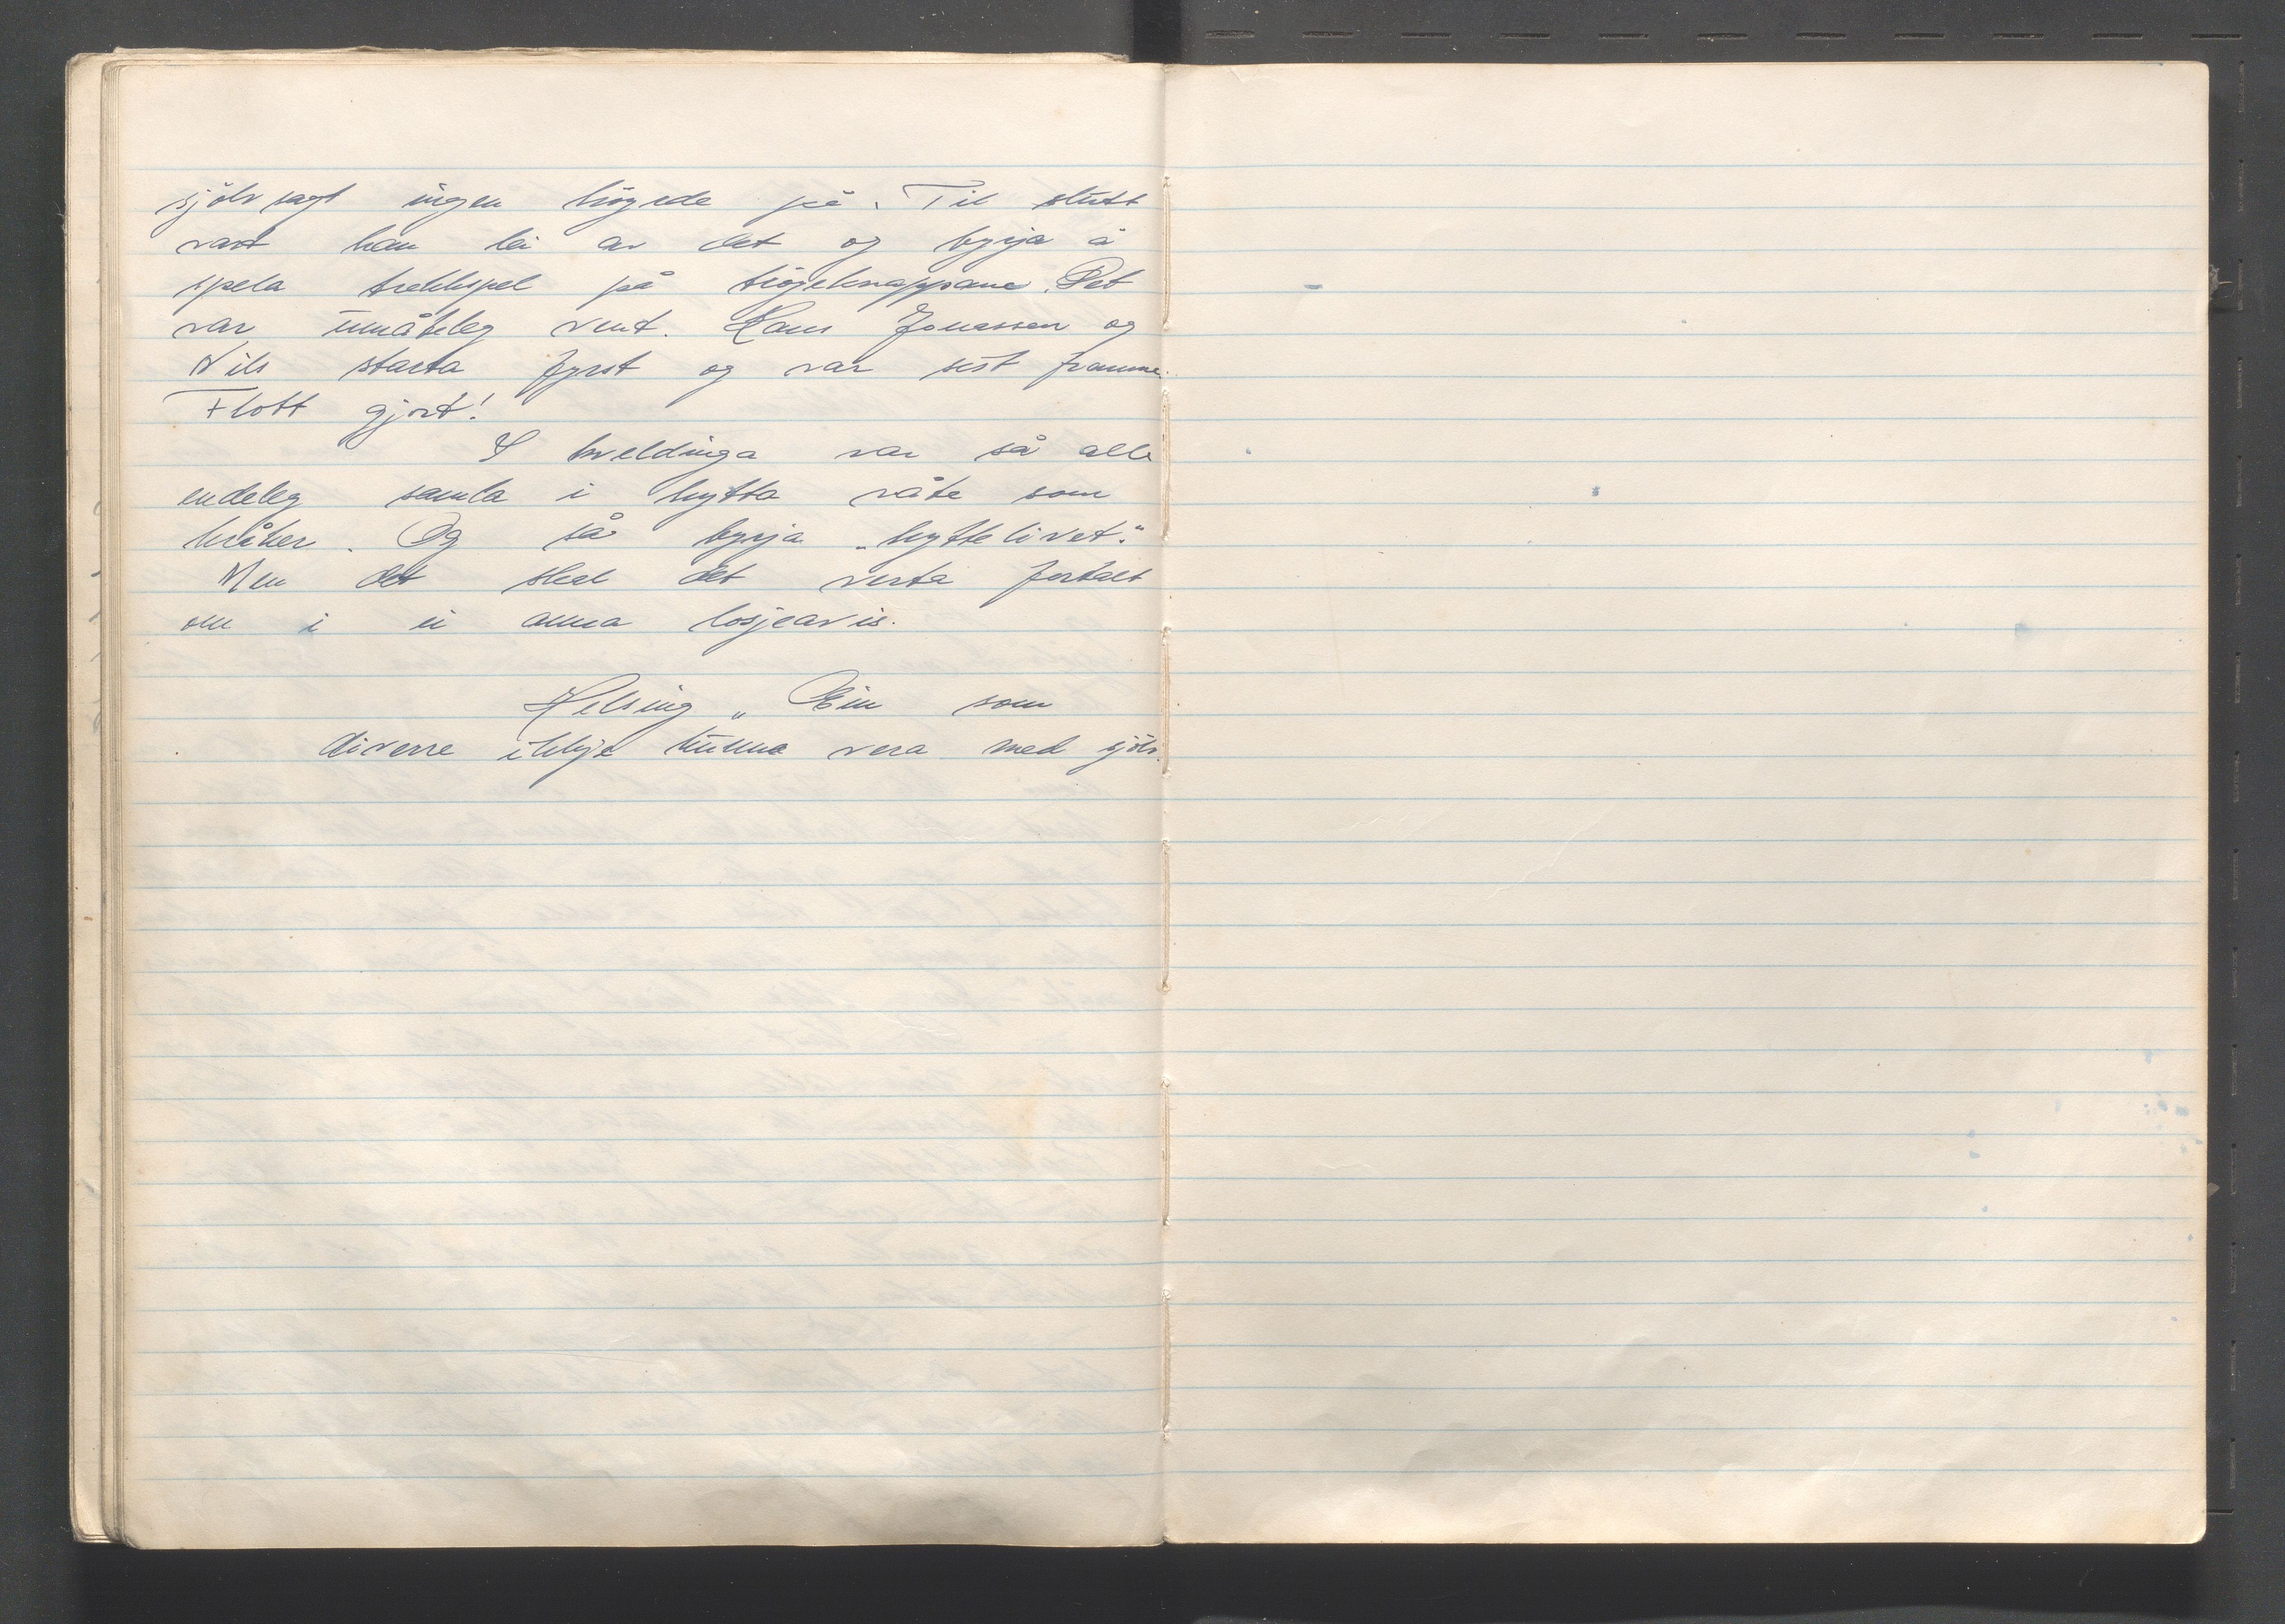 sjölvsagt ingen greide på. Til slutt
vart han lei av det og byrja å
spela trekkspel på trøyeknappane. Det
var umåteleg vent. Hans Jonassen og
Nils starta fyrst og var sist framme.
Flott gjort!
I kveldinga var så alle
endeleg samla i hytta våte som
kråker. Og så byrja „hyttelivet".
Men det skal det verta fortalt
om i ei anna losjeavis.
Helsing „Ein som
diverre ikkje kunna vera med sjölv.